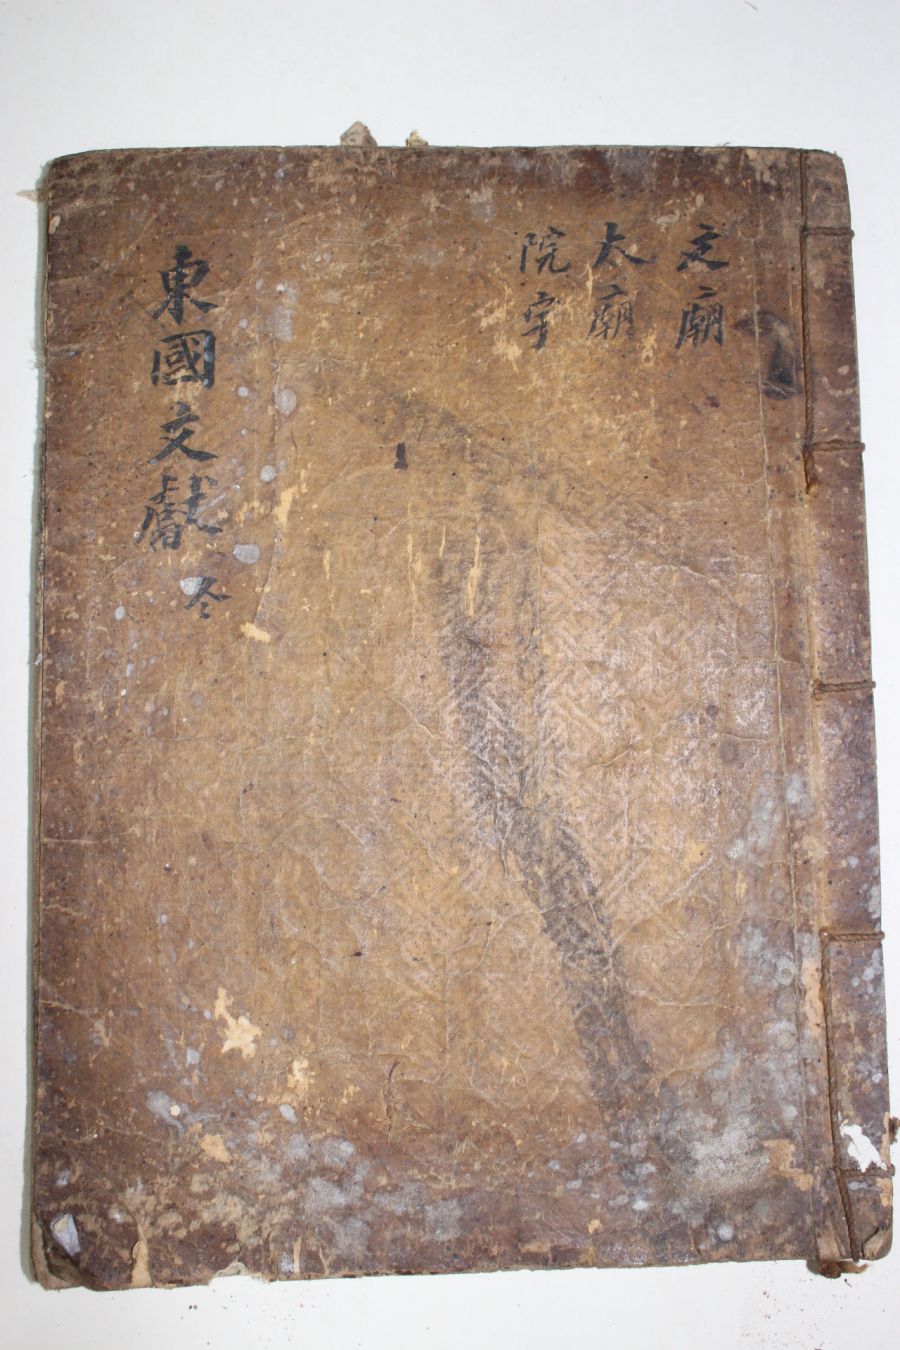 文廟
太廟
院宇
東國文獻 冬